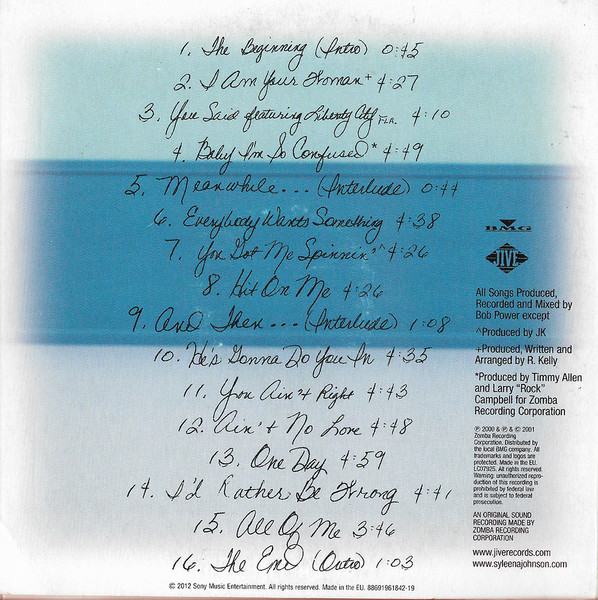 1. The Beginning (Intro) 0:45
2. I Am Your Woman+ 4:27
3. You Said featuring Liberty City FLA. 4:10
4. Baby I'm So Confused* 4:49
5. Meanwhile... (Interlude) 0:44
6. Everybody Wants Something 4:38
7. You Got Me Spinnin'^ 4:26
8. Hit On Me 4:26
9. And Then... (Interlude) 1:08
10. He's Gonna Do You In 4:35
11. You Ain't Right 4:43
12. Ain't No Love 4:48
13. One Day 4:59
14. I'd Rather Be Wrong 4:41
15. All Of Me 3:46
16. The End (Outro) 1:03
BMG
JIVE
All Songs Produced,
Recorded and Mixed by
Bob Power except
^Produced by JK
+Produced, Written and
Arranged by R. Kelly
*Produced by Timmy Allen
and Larry "Rock"
Campbell for Zomba
Recording Corporation
℗ 2000 & ℗ & © 2001
Zomba Recording
Corporation. Distributed by
the local BMG company. All
trademarks and logos are
protected. Made in the EU.
LC07925. All rights reserved.
Warning: unauthorized repro-
duction of this recording is
prohibited by federal law
and is subject to federal
prosecution.
AN ORIGINAL SOUND
RECORDING MADE BY
ZOMBA RECORDING
CORPORATION
www.jiverecords.com
www.syleenajohnson.com
© 2012 Sony Music Entertainment. All rights reserved. Made in the EU. 88691961842-19